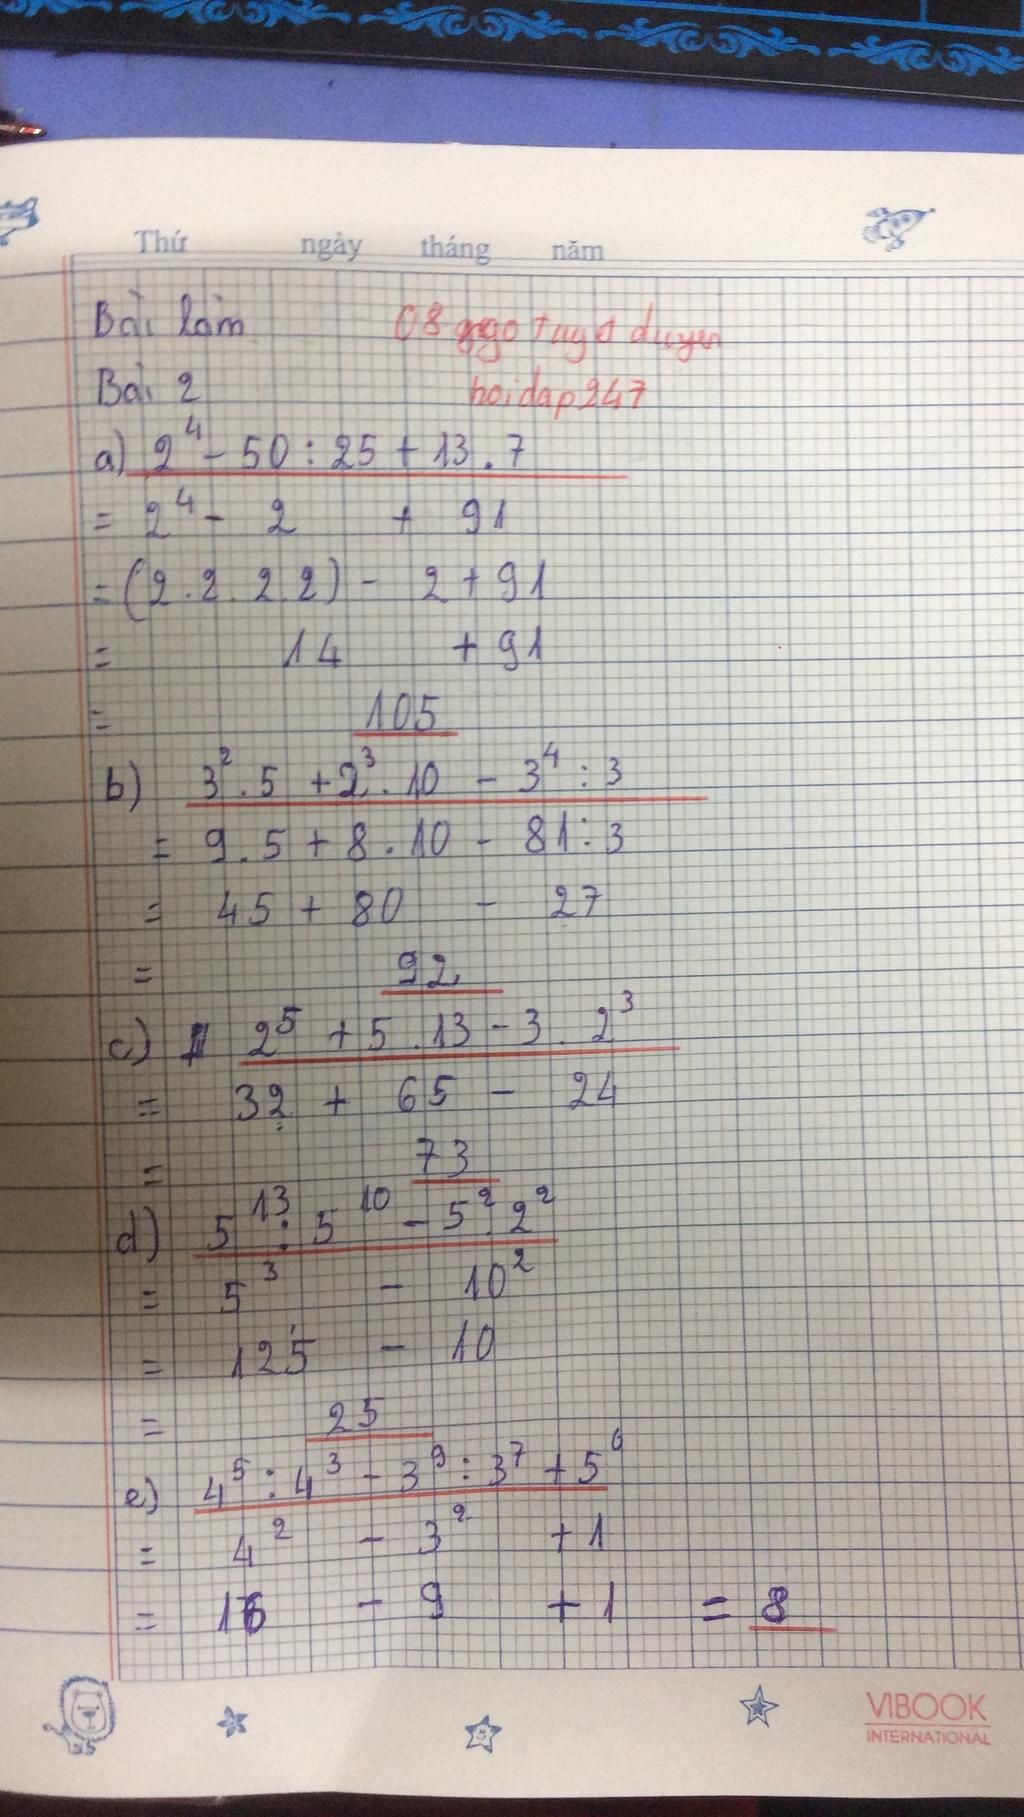 Thứ ngày tháng năm
Bài làm
08 ngo tuyet duyen
Bài 2
hoidap247
a) 2⁴ - 50 : 25 + 13 . 7
= 2⁴ - 2 + 91
= (2 . 2 . 2 . 2) - 2 + 91
= 14 + 91
= 105
b) 3² . 5 + 2³ . 10 - 3⁴ : 3
= 9 . 5 + 8 . 10 - 81 : 3
= 45 + 80 - 27
= 92
c) 2⁵ + 5 . 13 - 3 . 2³
= 32 + 65 - 24
= 73
d) 5¹³ : 5¹⁰ - 5² . 2²
= 5³ - 10²
= 125 - 10
= 25
e) 4⁵ : 4³ - 3⁹ : 3⁷ + 5⁰
= 4² - 3² + 1
= 16 - 9 + 1 = 8
VIBOOK
INTERNATIONAL